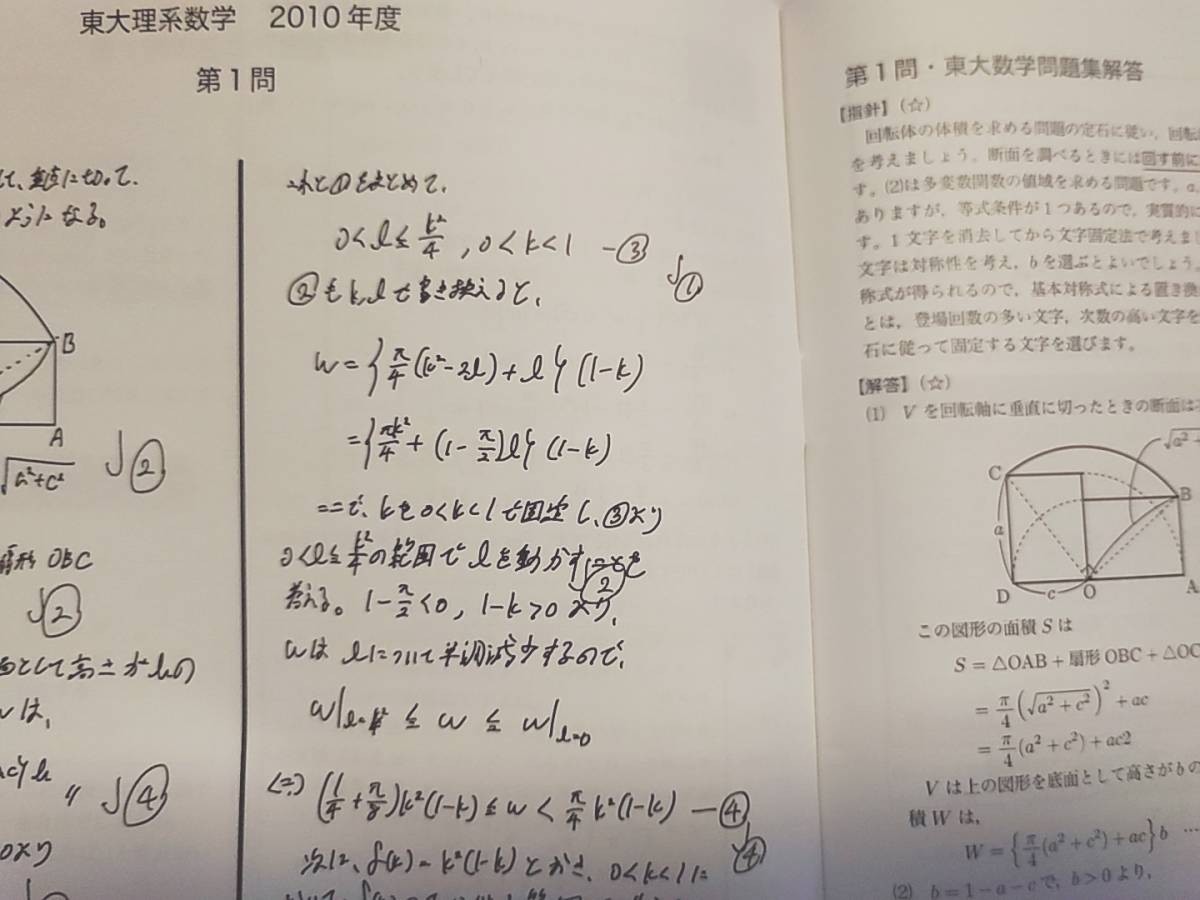 東大理系数学 2010年度
第1問
て、垂直に切って、
ようになる。
B
A
√a²+c²
②
扇形 OBC
②
面として高さがbの
Wは、
④
より
これと①をまとめて、
0<l≦k²/4 , 0<k<1 ―③
①
②もk,lで書き換えると、
W={π/4(k²-2l)+l}(1-k)
={πk²/4+(1-π/2)l}(1-k)
ここで、kを0<k<1で固定し、③より
0<l≦k²/4の範囲でlを動かすことを
②
考える。1-π/2<0, 1-k>0より、
Wはlについて単調減少するので、
W|l=k²/4 ≦ W ≦ W|l=0
(1/4+π/8)k²(1-k)≦W<π/4k²(1-k) ―④
④
次に、f(k)=k²(1-k)とおき、0<k<1に
第1問・東大数学問題集解答
【指針】(☆)
回転体の体積を求める問題の定石に従い,回転
を考えましょう。断面を調べるときには回す前に
す。(2)は多変数関数の値域を求める問題です。a,
ありますが,等式条件が1つあるので,実質的に
す。1文字を消去してから文字固定法で考えまし
文字は対称性を考え,bを選ぶとよいでしょう。
称式が得られるので,基本対称式による置き換
とは,登場回数の多い文字,次数の高い文字を
石に従って固定する文字を選びます。
【解答】(☆)
(1) Vを回転軸に垂直に切ったときの断面は
√a²+
C
B
a
D
c
O
A
この図形の面積Sは
S=△OAB+扇形OBC+△OC
=π/4(√a²+c²)²+ac
=π/4(a²+c²)+ac2
Vは上の図形を底面として高さがbの
積Wは,
W={π/4(a²+c²)+ac}b …
(2) b=1-a-cで,b>0より,